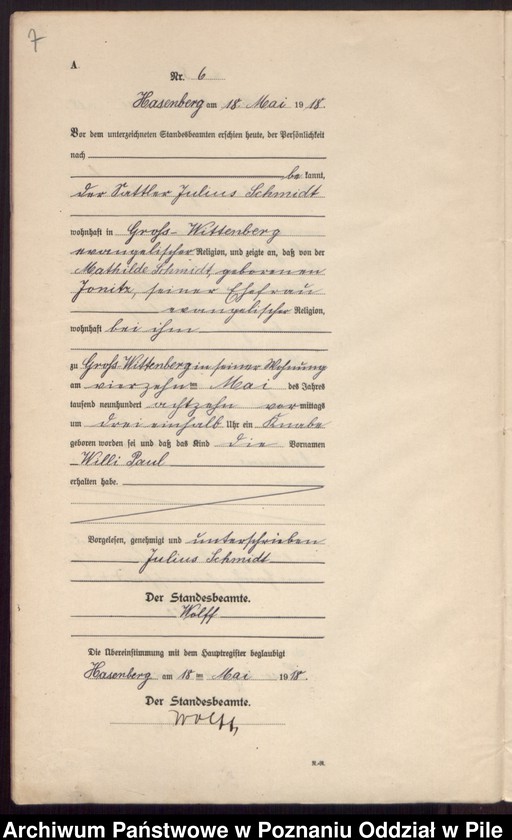 7
A.
Nr. 6
Hasenberg am 18. Mai 1918.
Vor dem unterzeichneten Standesbeamten erschien heute, der Persönlichkeit
nach
be kannt,
der Sattler Julius Schmidt
wohnhaft in Groß-Wittenberg
evangelischer Religion, und zeigte an, daß von der
Mathilde Schmidt, geborenen
Jonitz, seiner Ehefrau
evangelischer Religion,
wohnhaft bei ihm
zu Groß-Wittenberg in seiner Wohnung
am vierzehnten Mai des Jahres
tausend neunhundert achtzehn vor mittags
um drei einhalb Uhr ein Knabe
geboren worden sei und daß das Kind die Vornamen
Willi Paul
erhalten habe.
Vorgelesen, genehmigt und unterschrieben
Julius Schmidt
Der Standesbeamte.
Wolff
Die Übereinstimmung mit dem Hauptregister beglaubigt
Hasenberg am 18ten Mai 1918.
Der Standesbeamte.
Wolff
Archiwum Państwowe w Poznaniu Oddział w Pile